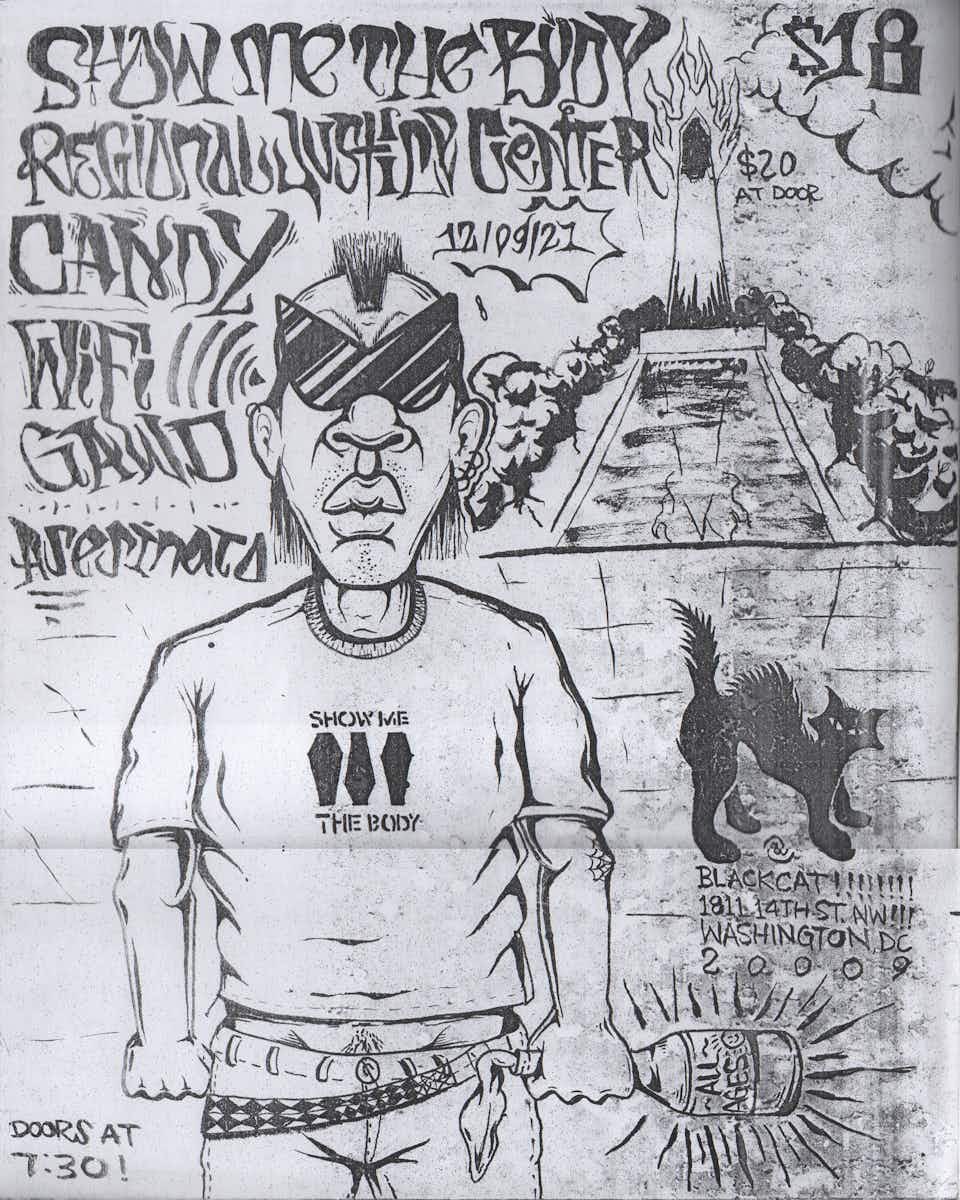 SHOW ME THE BODY
$18
REGIONAL JUSTICE CENTER
$20
AT DOOR
CANDY
12/09/21
WiFi
GAWD
Asesinato
SHOW ME
THE BODY
@
BLACKCAT!!!!!!!!
1811 14TH ST. NW!!!
WASHINGTON, DC
20009
~ALL~
AGES
DOORS AT
7:30!